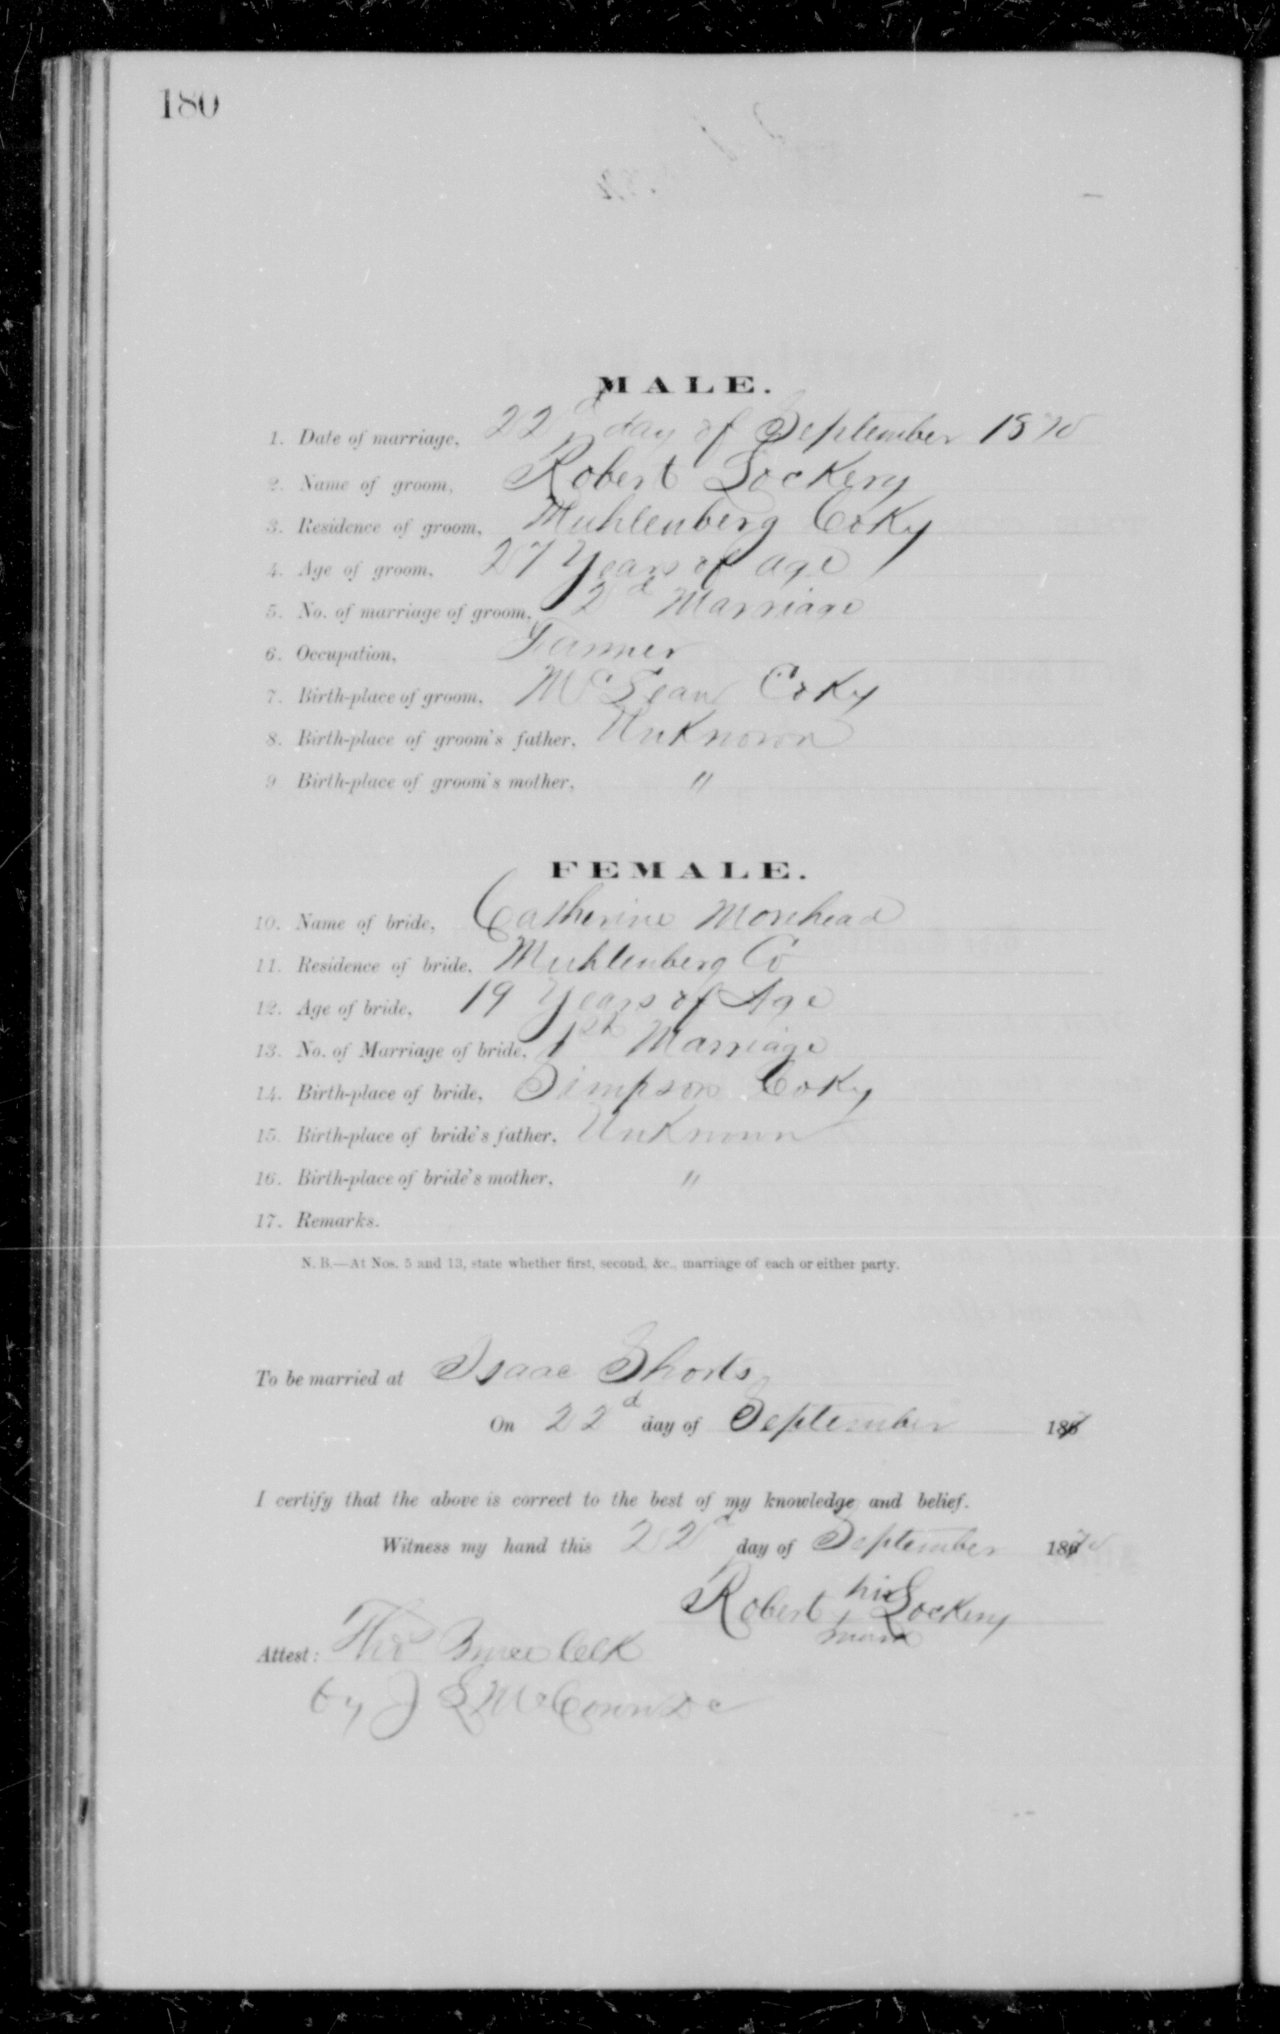 180
MALE.
1. Date of marriage, 22d day of September 1870
2. Name of groom, Robert Lockery
3. Residence of groom, Muhlenberg CoKy
4. Age of groom, 27 Years of age
5. No. of marriage of groom, 2d Marriage
6. Occupation, Farmer
7. Birth-place of groom, McLean CoKy
8. Birth-place of groom's father, Unknown
9 Birth-place of groom's mother, "
FEMALE.
10. Name of bride, Catherine Morehead
11. Residence of bride, Muhlenberg Co
12. Age of bride, 19 Years of Age
13. No. of Marriage of bride, 1st Marriage
14. Birth-place of bride, Simpson CoKy
15. Birth-place of bride's father, Unknown
16. Birth-place of bride's mother, "
17. Remarks.
N. B.—At Nos. 5 and 13, state whether first, second, &c., marriage of each or either party.
To be married at Isaac Shorts
On 22d day of September 187
I certify that the above is correct to the best of my knowledge and belief.
Witness my hand this 22d day of September 1870
Robert his Lockery
mark
Attest: Tho Bruce Clk
by J L McConn DC